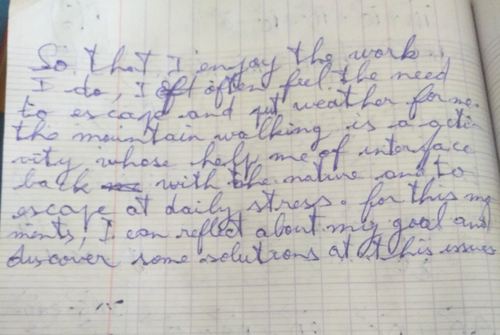 So that I enjoy the work
I do, I often feel the need
to escape and weather for me.
the mountain walking is a acti
vity whose help me of interface
back with the nature and to
escape at daily stress. for this mo
ments, I can reflect about my goal and
discover some solutions at this issues